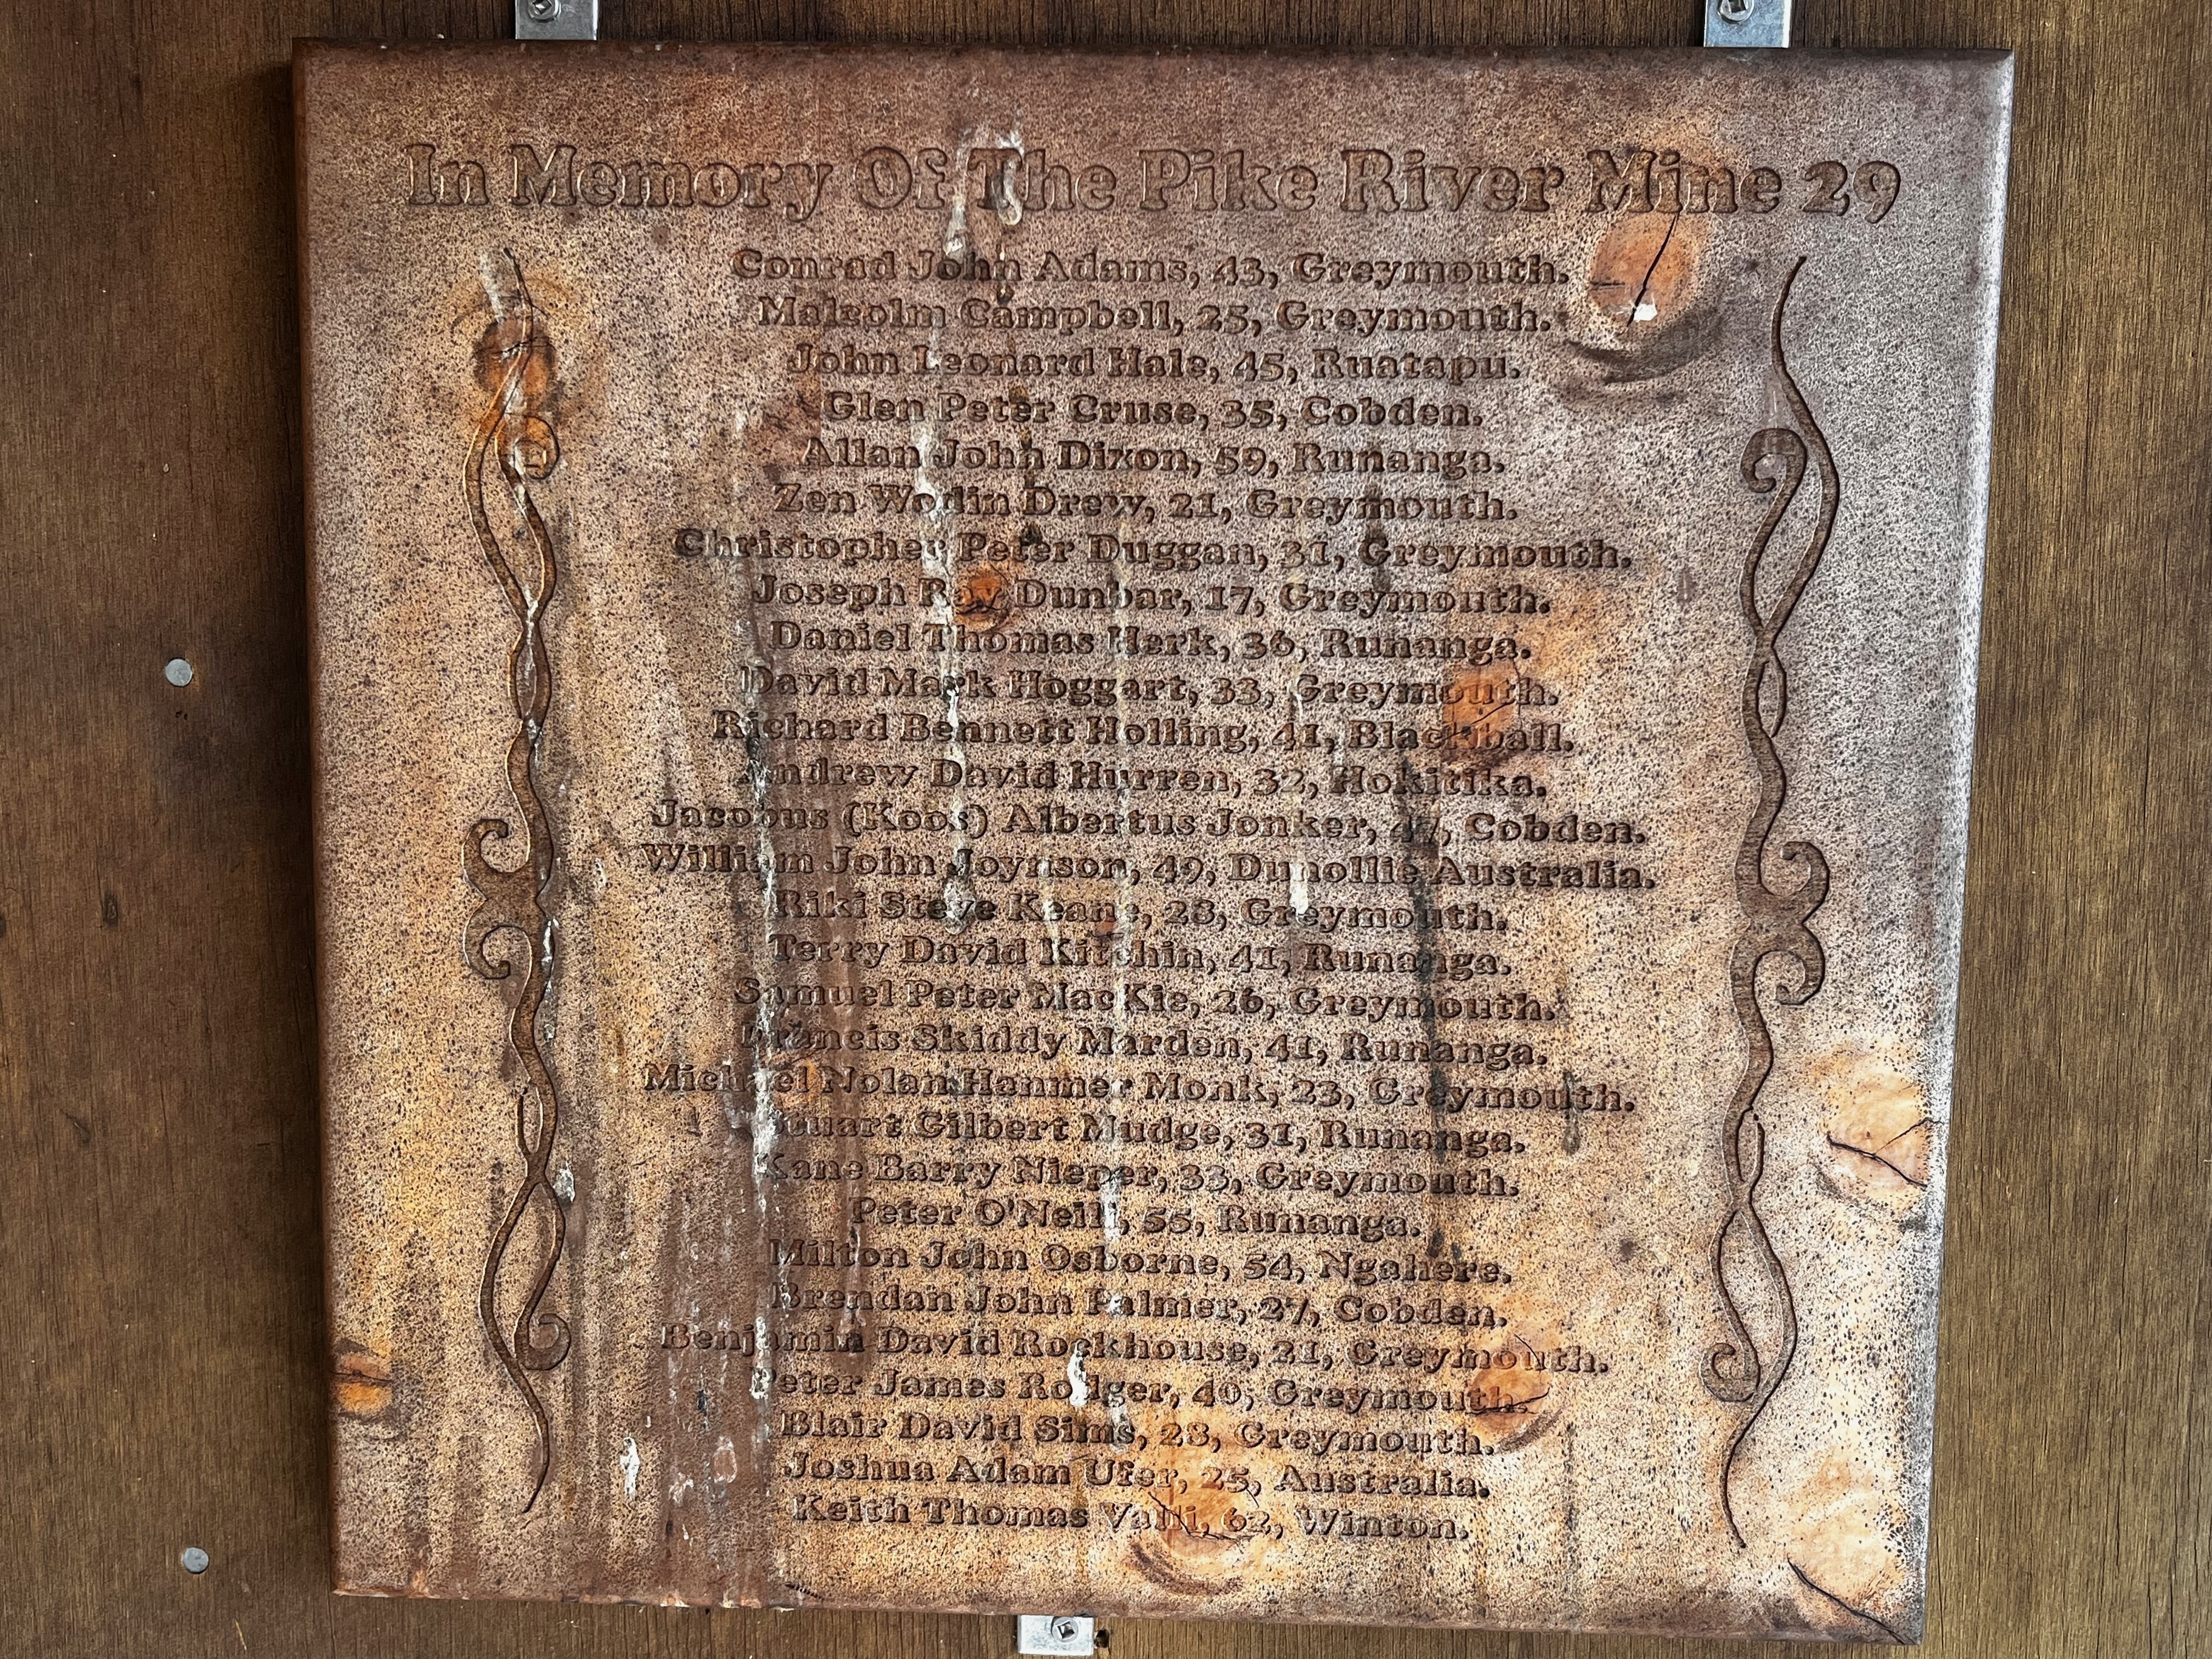 In Memory Of The Pike River Mine 29
Conrad John Adams, 43, Greymouth.
Malcolm Campbell, 25, Greymouth.
John Leonard Hale, 45, Ruatapu.
Glen Peter Cruse, 35, Cobden.
Allan John Dixon, 59, Runanga.
Zen Wodin Drew, 21, Greymouth.
Christopher Peter Duggan, 31, Greymouth.
Joseph Ray Dunbar, 17, Greymouth.
Daniel Thomas Herk, 36, Runanga.
David Mark Hoggart, 33, Greymouth.
Richard Bennett Holling, 41, Blackball.
Andrew David Hurren, 32, Hokitika.
Jacobus (Koos) Albertus Jonker, 47, Cobden.
William John Joynson, 49, Dunollie Australia.
Riki Steve Keane, 28, Greymouth.
Terry David Kitchin, 41, Runanga.
Samuel Peter MacKie, 26, Greymouth.
Francis Skiddy Marden, 41, Runanga.
Michael Nolan Hanmer Monk, 23, Greymouth.
Stuart Gilbert Mudge, 31, Runanga.
Kane Barry Nieper, 33, Greymouth.
Peter O'Neill, 55, Runanga.
Milton John Osborne, 54, Ngahere.
Brendan John Palmer, 27, Cobden.
Benjamin David Rockhouse, 21, Greymouth.
Peter James Rodger, 40, Greymouth.
Blair David Sims, 28, Greymouth.
Joshua Adam Ufer, 25, Australia.
Keith Thomas Valli, 62, Winton.